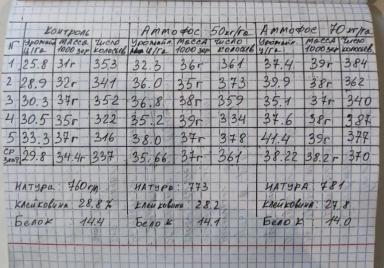 Контроль Аммофос 50кг/га Аммофос 70кг/га
№ Урожай ц/га Масса 1000 зер Число колосьев Урожай ц/га Масса 1000 зер Число колосьев Урожай ц/га Масса 1000 зер Число колосьев
1 25.8 31г 353 32.3 36г 361 37.4 39г 384
2 28.9 32г 341 36.0 35г 373 39.9 38г 362
3 30.3 37г 352 36.8 38г 359 35.1 37г 340
4 30.5 35г 322 35.2 39г 334 37.6 38г 387
5 33.3 37г 316 38.0 37г 378 41.4 39г 377
Ср 29.8 34.4г 337 35.66 37г 361 38.22 38.2г 370
Натура: 760гл Натура: 773 Натура: 781
Клейковина 28,8% Клейковина 28.2 Клейковина 27.8
Белок 14.4 Белок 14.1 Белок 14.0